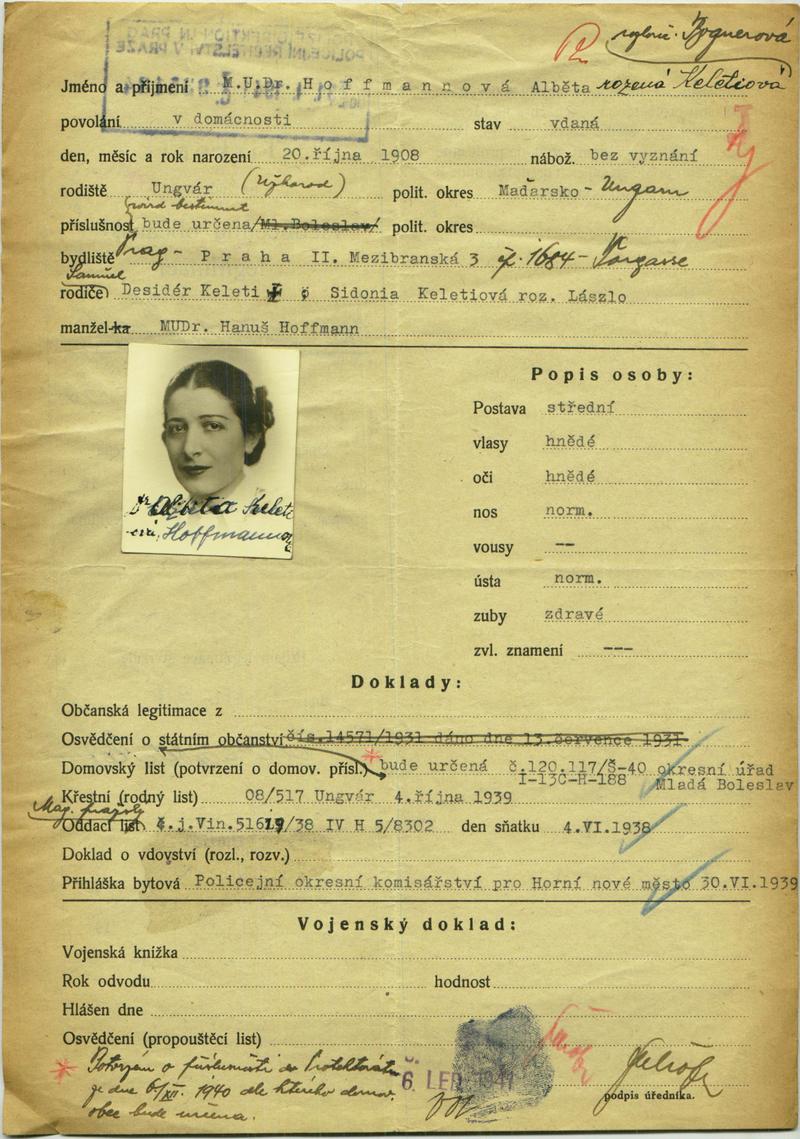 rozluč. Bognerová
Jméno a přijmení M.U.Dr. Hoffmannová Alběta rozená Keletiová
povolání v domácnosti stav vdaná
den, měsíc a rok narození 20.října 1908 nábož. bez vyznání
rodiště Ungvár (Užhorod) polit. okres Maďarsko - Ungarn
wird bestimmt
příslušnost bude určena/Ml.Boleslav/ polit. okres
bydliště Prag - Praha II. Mezibranská 3 čp. 1684 - Torgasse
Samuel
rodiče Desidér Keleti Sidonia Keletiová roz. Lászlo
manžel-ka MUDr. Hanuš Hoffmann
Popis osoby:
Postava střední
vlasy hnědé
oči hnědé
nos norm.
vousy --
ústa norm.
zuby zdravé
zvl. znamení ---
Dr Alžběta Keleti-
ová, Hoffmannová
Doklady:
Občanská legitimace z
Osvědčení o státním občanství čís.14571/1931 dáno dne 13.července 1931
Domovský list (potvrzení o domov. přísl.) bude určená č.120.117/Š-40 okresní úřad
I-13C-H-188 Mladá Boleslav
Křestní (rodný list) 08/517 Ungvár 4.října 1939
Mag. pražský
Oddací list č.j.Vin.51619/38 IV H 5/8302 den sňatku 4.VI.1938
Doklad o vdovství (rozl., rozv.)
Přihláška bytová Policejní okresní komisářství pro Horní nové město 30.VI.1939
Vojenský doklad:
Vojenská knížka
Rok odvodu hodnost
Hlášen dne
Osvědčení (propouštěcí list)
* Potvrzení o příslušnosti do Protektorátu
je dne 6/XII. 1940 dle kterého domov.
obec bude určena.
6. LED. 1941
podpis úředníka.